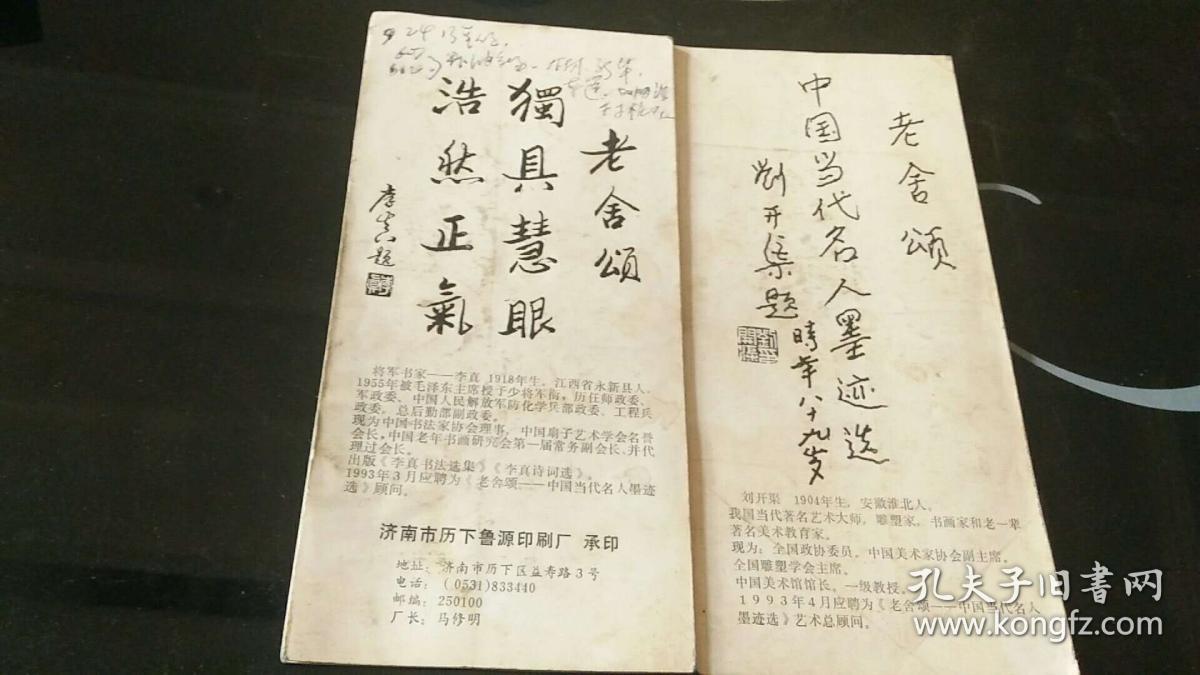 老舍頌
獨具慧眼
浩然正氣
李真题
将军书家——李真 1918年生，江西省永新县人、
1955年被毛泽东主席授于少将军衔，历任师政委、
军政委、中国人民解放军防化学兵部政委、工程兵
政委，总后勤部副政委。
现为中国书法家协会理事，中国扇子艺术学会名誉
会长，中国老年书画研究会第一届常务副会长、并代
理过会长。
出版《李真书法选集》《李真诗词选》。
1993年3月应聘为《老舍颂——中国当代名人墨迹
选》顾问。
济南市历下鲁源印刷厂 承印
地址：济南市历下区益寿路3号
电话：(0531)833440
邮编：250100
厂长：马修明
老舍颂
中国当代名人墨迹选
刘开渠题
時年八十九岁
刘开渠 1904年生，安徽淮北人。
我国当代著名艺术大师，雕塑家，书画家和老一辈
著名美术教育家。
现为：全国政协委员，中国美术家协会副主席，
全国雕塑学会主席。
中国美术馆馆长，一级教授。
1993年4月应聘为《老舍颂——中国当代名人
墨迹选》艺术总顾问。
孔夫子旧书网
www.kongfz.com